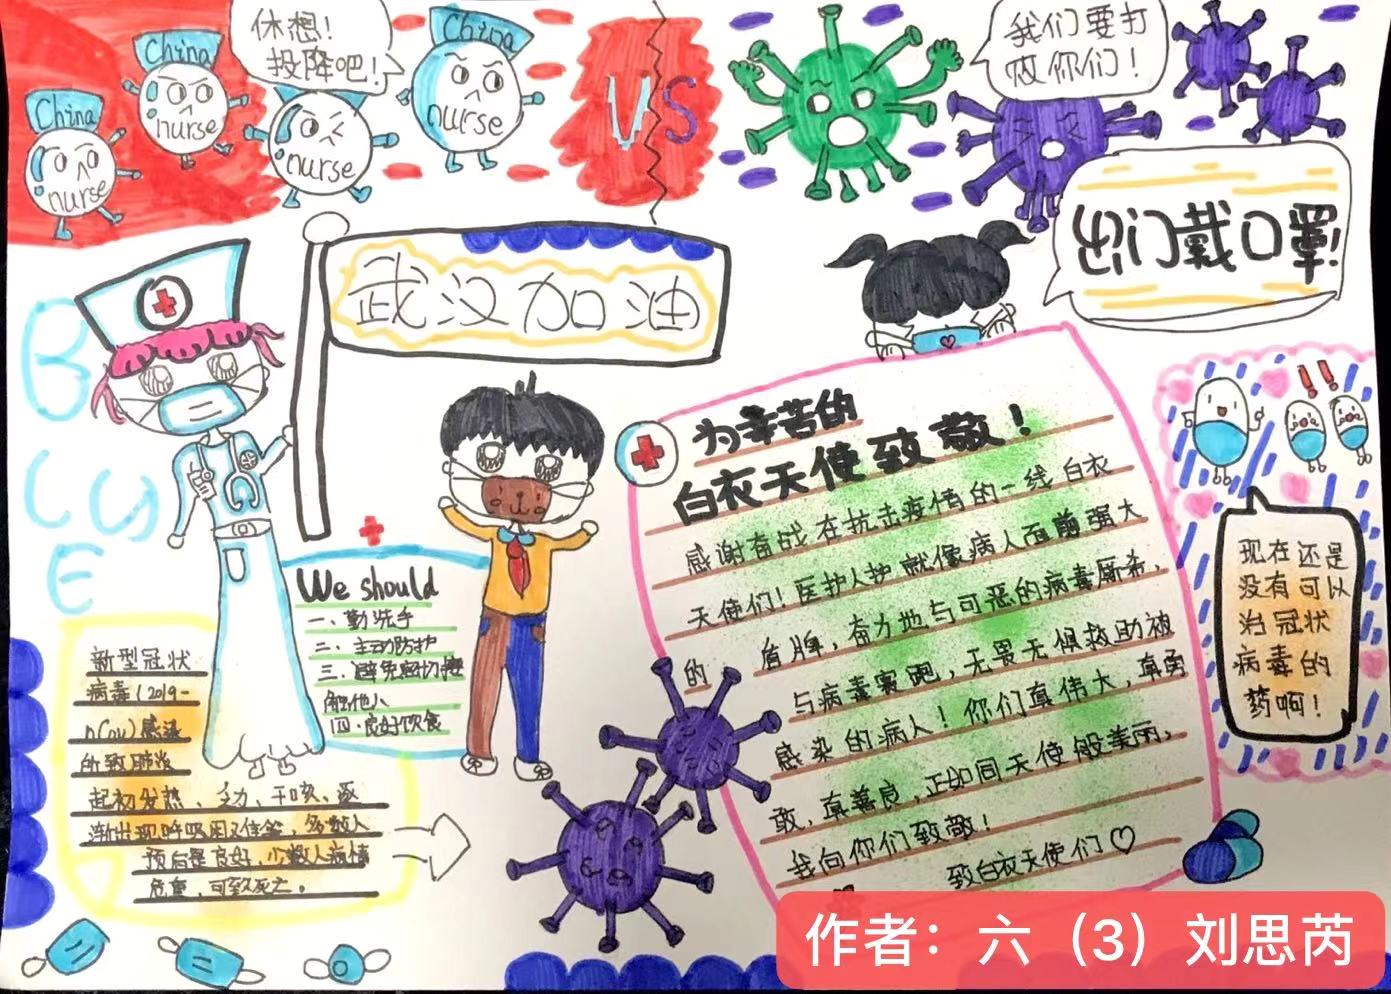 休想！
投降吧！
China
nurse
China
nurse
nurse
China
nurse
VS
我们要打
败你们！
出门戴口罩！
武汉加油
BLUE
We should
一、勤洗手
二、主动防护
三、避免密切接
触他人
四、良好饮食
新型冠状
病毒（2019-
nCov）感染
所致肺炎
起初发热、乏力、干咳、逐
渐出现呼吸困难等，多数人
预后是良好，少数人病情
危重，可致死亡。
为辛苦的
白衣天使致敬！
感谢奋战在抗击疫情的一线白衣
天使们！医护人护就像病人面前强大
的 盾牌，奋力地与可恶的病毒厮杀，
与病毒赛跑，无畏无惧救助被
感染的病人！你们真伟大，真勇
敢，真善良，正如同天使般美丽，
我向你们致敬！
致白衣天使们
现在还是
没有可以
治冠状
病毒的
药啊！
作者：六（3）刘思芮